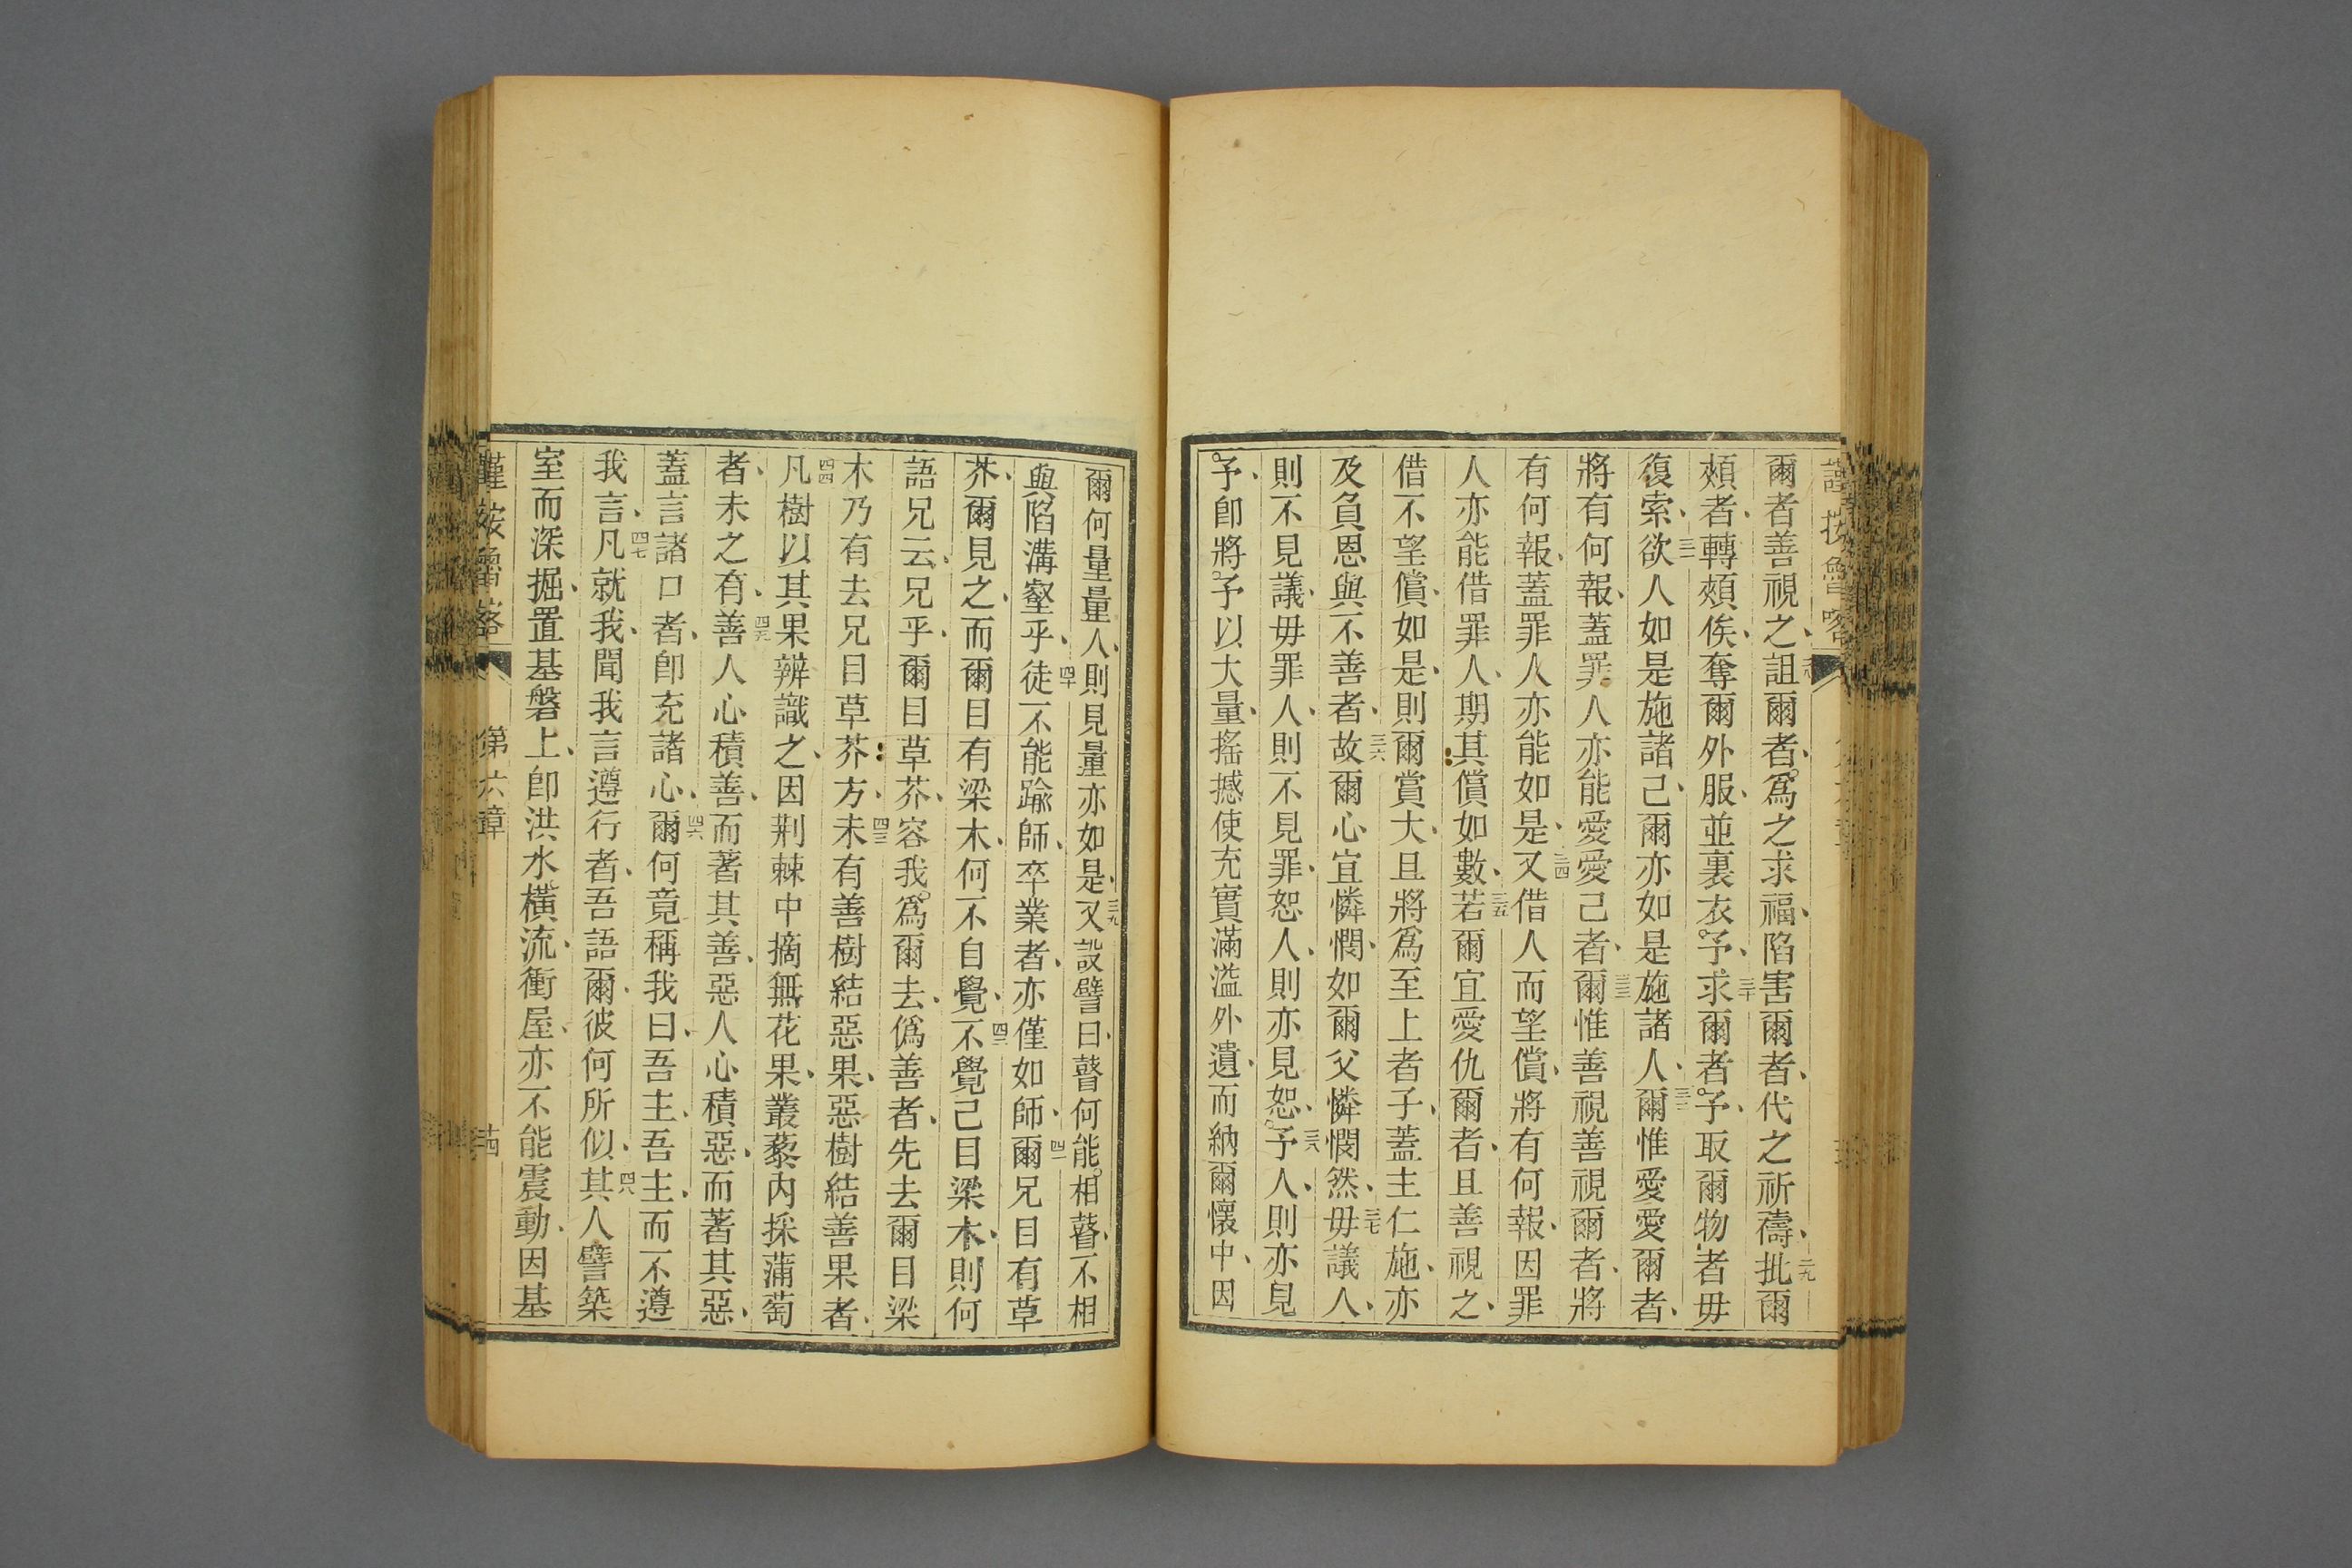 爾者善視之、詛爾者、爲之求福、陷害爾者、代之祈禱、二九批爾
頰者、轉頰俟、奪爾外服、並裏衣予、三十求爾者、予、取爾物者毋
復索、三一欲人如是施諸己、爾亦如是施諸人、三二爾惟愛愛爾者、
將有何報、蓋罪人亦能愛愛己者、三三爾惟善視善視爾者、將
有何報、蓋罪人亦能如是、三四又借人而望償、將有何報、因罪
人亦能借罪人、期其償如數、三五若爾宜愛仇爾者、且善視之、
借不望償、如是、則爾賞大、且將爲至上者子、蓋主仁施、亦
及負恩與不善者、三六故爾心宜憐憫、如爾父憐憫然、三七毋議人、
則不見議、毋罪人、則不見罪、恕人、則亦見恕、三八予人、則亦見
予、卽將予以大量、搖撼使充實滿溢外遺、而納爾懷中、因
爾何量量人、則見量亦如是、三九又設譬曰、瞽何能相瞽、不相
與陷溝壑乎、四十徒不能踰師、卒業者、亦僅如師、四一爾兄目有草
芥、爾見之、而爾目有梁木、何不自覺、四二不覺己目梁木、則何
語兄云、兄乎、爾目草芥、容我爲爾去、僞善者、先去爾目梁
木乃有去兄目草芥方、四三未有善樹結惡果、惡樹結善果者、
四四凡樹以其果辨識之、因荆棘中摘無花果、叢藜內採蒲萄
者、未之有、四五善人心積善、而著其善、惡人心積惡、而著其惡、
蓋言諸口者、卽充諸心、四六爾何竟稱我曰、吾主、吾主、而不遵
我言、四七凡就我、聞我言遵行者、吾語爾彼何所似、四八其人譬築
室而深掘、置基磐上、卽洪水橫流、衝屋、亦不能震動、因基
第六章